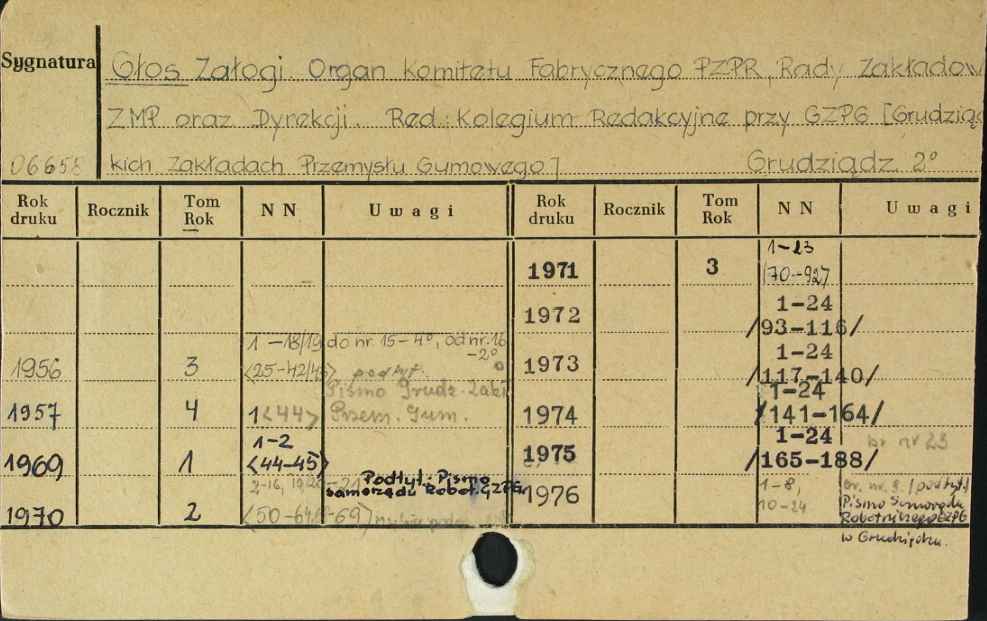 Sygnatura
Głos Załogi. Organ Komitetu Fabrycznego PZPR, Rady Zakładow
ZMP oraz Dyrekcji. Red.: Kolegium Redakcyjne przy GZPG [Grudziąd
06658 kich Zakładach Przemysłu Gumowego] Grudziądz. 2°
Rok druku Rocznik Tom Rok NN Uwagi Rok druku Rocznik Tom Rok NN Uwagi
1971 3 1-23
/70-92/
1972 1-24
/93-116/
1956 3 1-18/19 do nr. 15-4°, od nr. 16 -2°
<25-42/43> podtyt.
1973 1-24
/117-140/
1957 4 1<44> Pismo Grudz. Zakł.
Przem. Gum.
1974 1-24
/141-164/
1969 1 1-2
<44-45>
1975 1-24
/165-188/ br nr 23
1970 2 2-16,
<50-64 -69>
Podtyt.: Pismo
samorządu Robot. GZPG
1976 1-8,
10-24
br. nr. 9. /podtyt./
Pismo Samorządu
Robotniczego GZPG
w Grudziądzu.